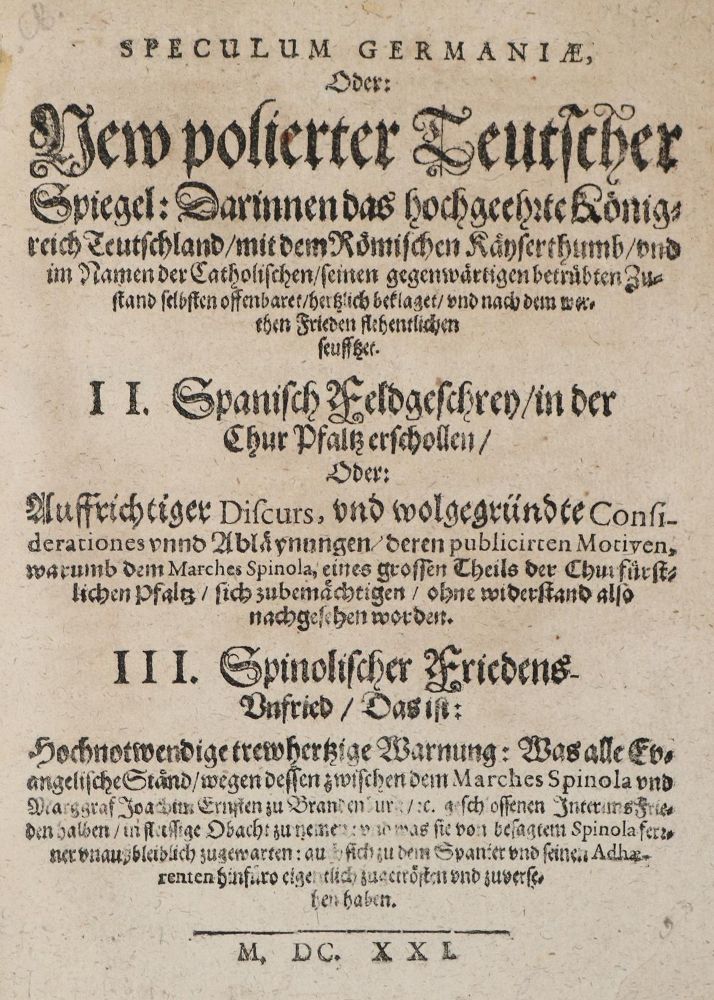 SPECULUM GERMANIÆ,
Oder:
New polierter Teutscher
Spiegel: Darinnen das hochgeehrte König-
reich Teutschland/mit dem Römischen Käyserthumb/vnd
im Namen der Catholischen/seinen gegenwärtigen betrübten Zu-
stand selbsten offenbaret/hertzlich beklaget/vnd nach dem wer-
then Frieden flehentlichen
seufftzet.
II. Spanisch Feldgeschrey/in der
Chur Pfaltz erschollen/
Oder:
Auffrichtiger Discurs, vnd wolgegründte Consi-
derationes vnnd Abläynungen/deren publicirten Motiven,
warumb dem Marches Spinola, eines grossen Theils der Churfürst-
lichen Pfaltz/sich zubemächtigen/ohne widerstand also
nachgesehen worden.
III. Spinolischer Friedens-
Vnfried/Das ist:
Hochnotwendige trewhertzige Warnung: Was alle Ev-
angelische Ständ/wegen dessen zwischen dem Marches Spinola vnd
Marggraf Joachim Ernsten zu Brandenburg/rc. geschlossenen Interims Frie-
den halben/in fleissige Obacht zu nemen: vnd was sie von besagtem Spinola fer-
ner vnaußbleiblich zugewarten: auch sich zu dem Spanier vnd seinen Adhæ-
renten hinfüro eigentlich zugetrösten vnd zuverse-
hen haben.
M. DC. XXI.